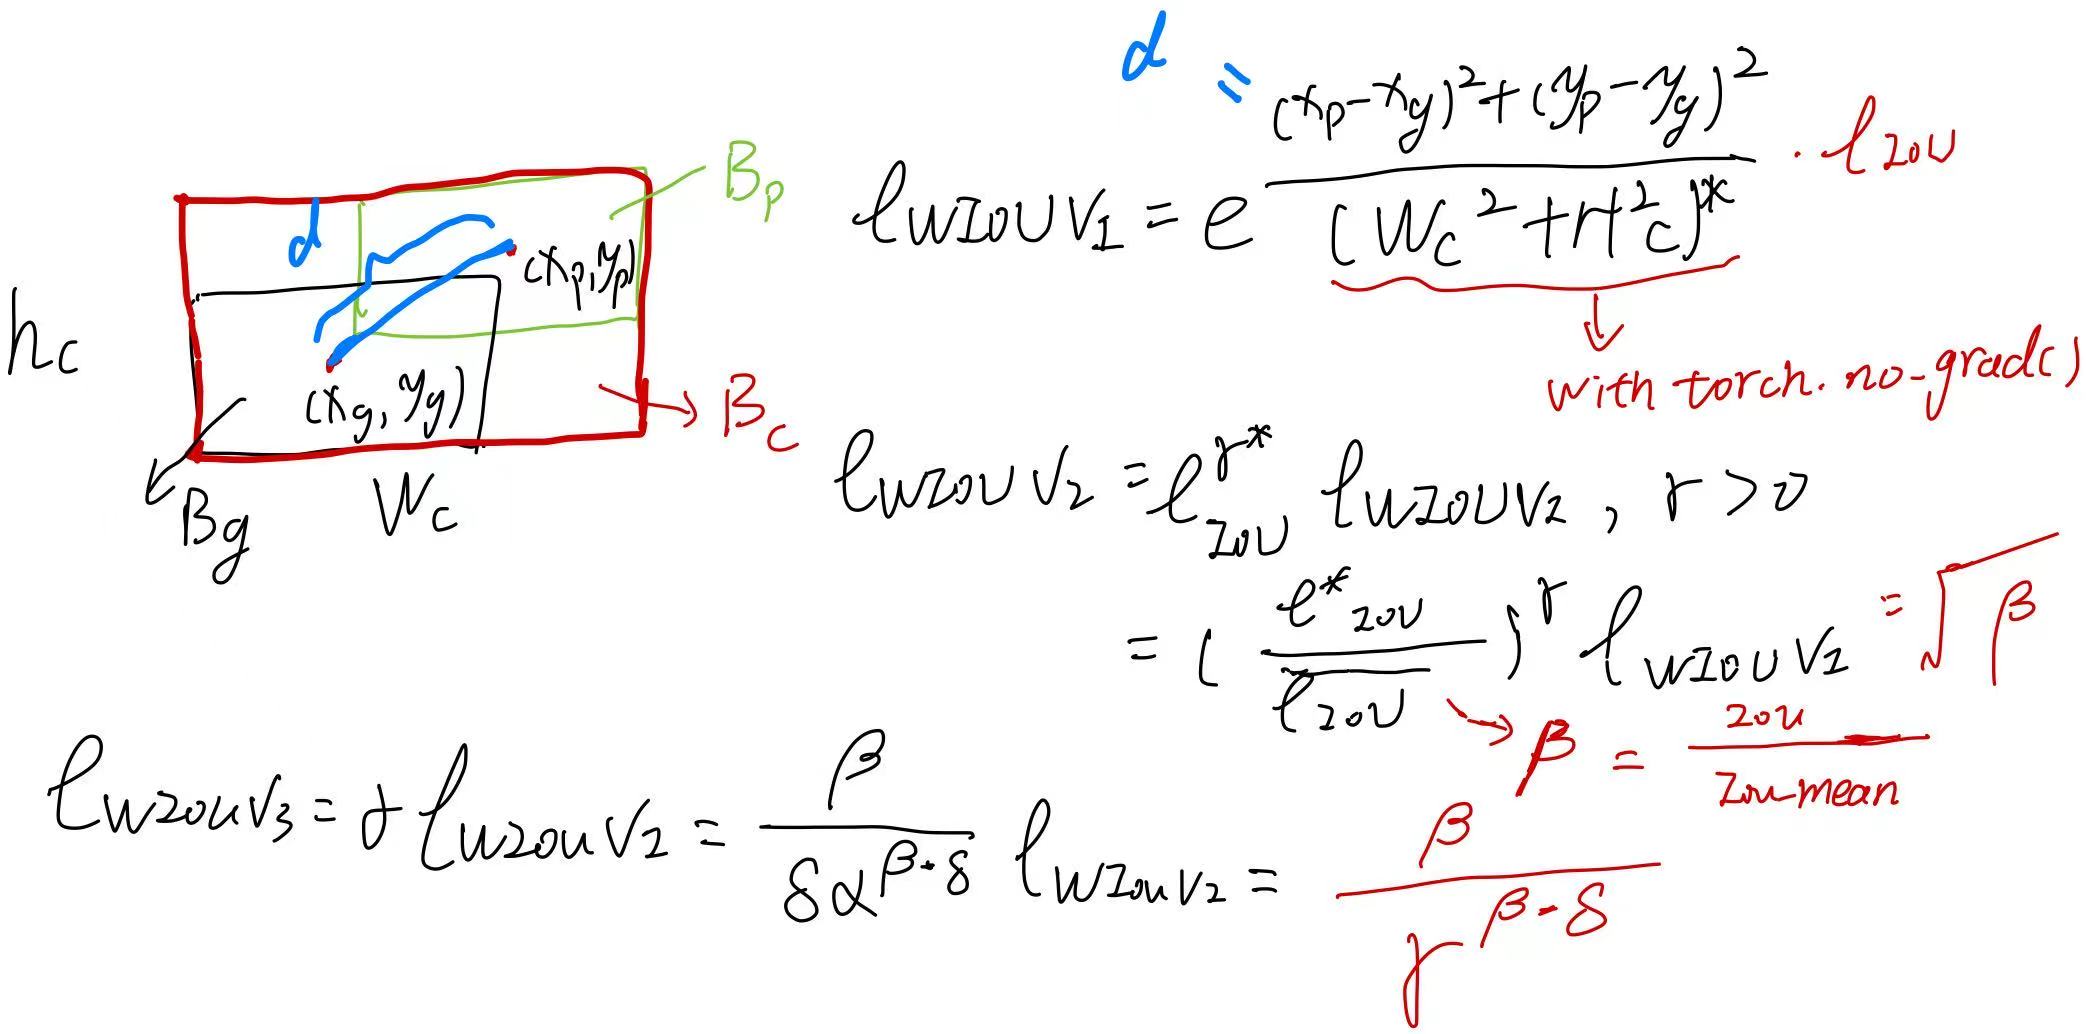 d
B_p
(x_p, y_p)
h_c
(x_g, y_g)
B_c
B_g
W_c
d = \frac{(x_p - x_g)^2 + (y_p - y_g)^2}{(W_c^2 + H_c^2)^*}
ℓ_{WIOU V1} = e^{\frac{(x_p - x_g)^2 + (y_p - y_g)^2}{(W_c^2 + H_c^2)^*}} · ℓ_{IOU}
with torch. no-grad()
ℓ_{WIOU V2} = ℓ_{IOU}^{γ*} ℓ_{WIOU V2}, γ > 0
= (\frac{ℓ^*_{IOU}}{\overline{ℓ_{IOU}}})^γ ℓ_{WIOU V1} = \sqrt{β}
β = \frac{IOU}{IOU-mean}
ℓ_{WIOU V3} = γ ℓ_{WIOU V2} = \frac{β}{δα^{β-δ}} ℓ_{WIOU V2} = \frac{β}{γ^{β-δ}}